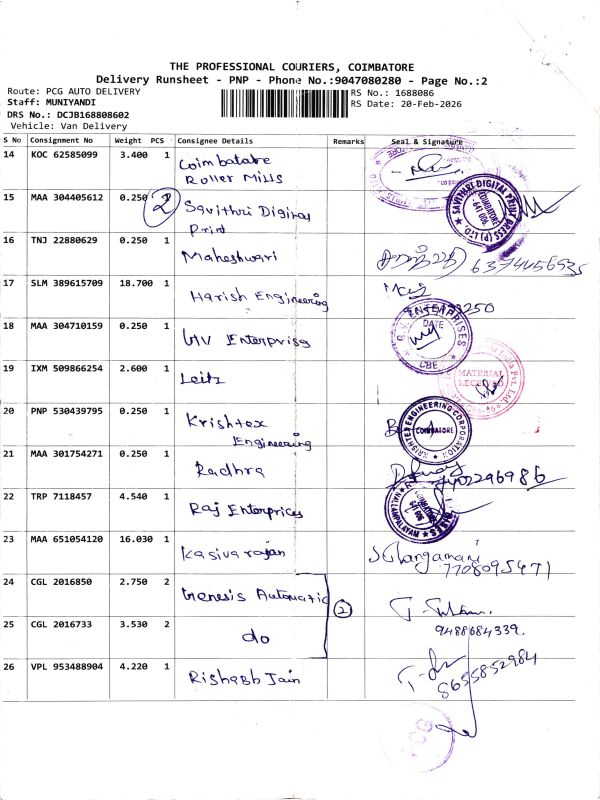 THE PROFESSIONAL COURIERS, COIMBATORE
Delivery Runsheet - PNP - Phone No.:9047080280 - Page No.:2
Route: PCG AUTO DELIVERY
RS No.: 1688086
Staff: MUNIYANDI
RS Date: 20-Feb-2026
DRS No.: DCJB168808602
Vehicle: Van Delivery
S No Consignment No Weight PCS Consignee Details Remarks Seal & Signature
14 KOC 62585099 3.400 1 Coimbatore
Roller Mills
15 MAA 304405612 0.250 2 Savithri Digital
Print
SAVITHRI DIGITAL PRINT PRESS (P) LTD
COIMBATORE
641 006
16 TNJ 22880629 0.250 1 Maheshwari
6374456535
17 SLM 389615709 18.700 1 Harish Engineering
18 MAA 304710159 0.250 1 GV Enterprise
G.V. ENTERPRISES
DATE
CBE
19 IXM 509866254 2.600 1 Leitz
India Pvt. Ltd.
MATERIAL
RECEIVED
20 PNP 530439795 0.250 1 Krishtex
Engineering
KRISHTEX ENGINEERING CORPORATION
COIMBATORE
21 MAA 301754271 0.250 1 Radhra
22 TRP 7118457 4.540 1 Raj Enterprices
NALLAMPALAYAM
641 006
23 MAA 651054120 16.030 1 Kasivarajan
7708095471
24 CGL 2016850 2.750 2 Genesis Automatic
2
25 CGL 2016733 3.530 2 do
9488684339.
26 VPL 953488904 4.220 1 Rishabh Jain
8655852984
PCG